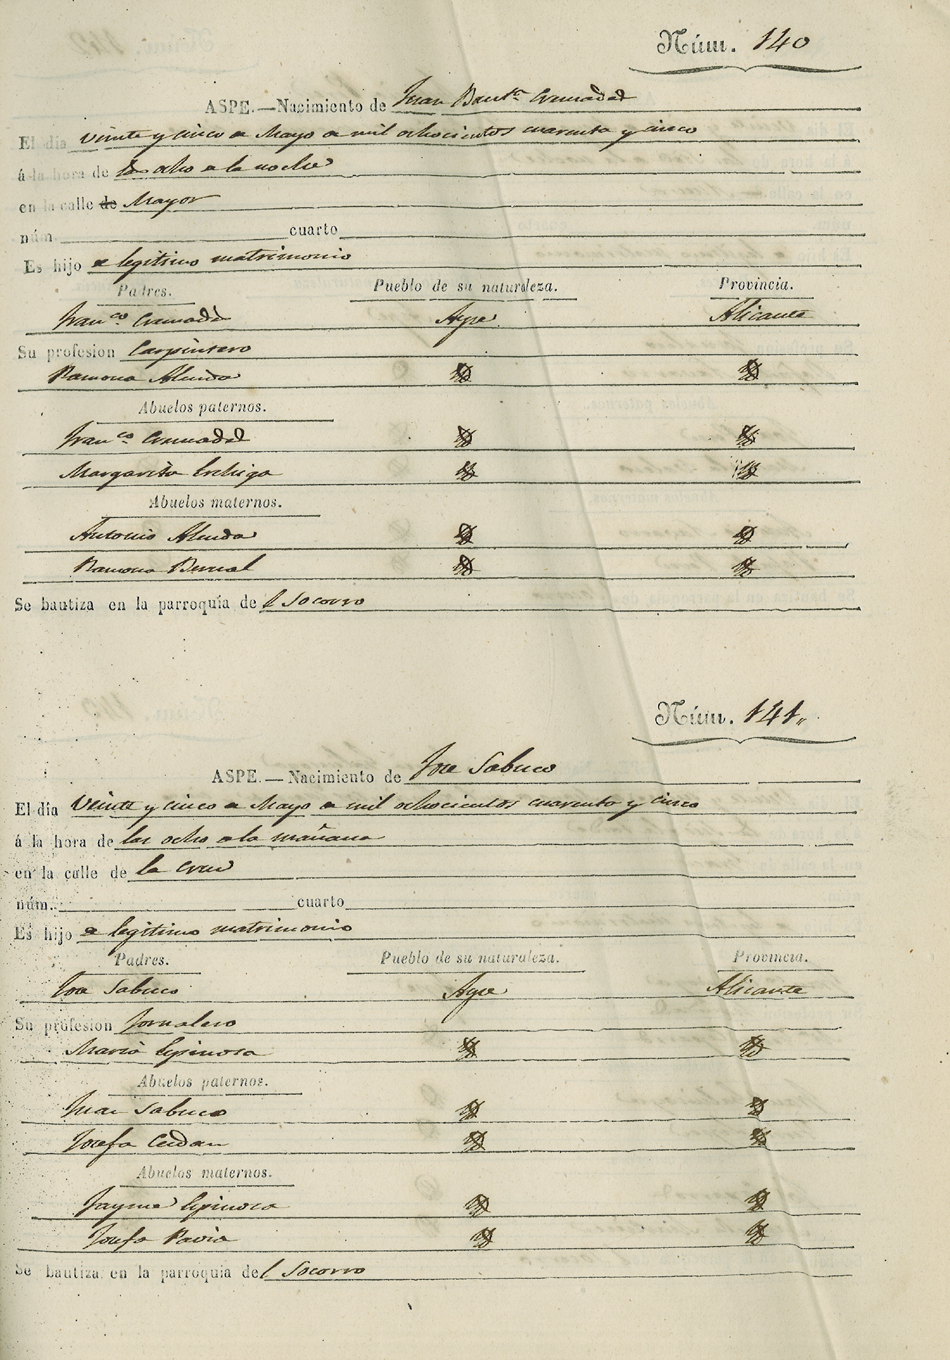 Núm. 140
ASPE.—Nacimiento de Juan Bauta. Cremades
El dia veinte y cinco de Mayo de mil ochocientos cuarenta y cinco
á la hora de las ocho de la noche
en la calle de Mayor
núm. cuarto
Es hijo de legitimo matrimonio
Padres. Pueblo de su naturaleza. Provincia.
Franco. Cremades Aspe Alicante
Su profesion Carpintero
Ramona Almodo Yd Yd
Abuelos paternos.
Franco. Cremades Yd Yd
Margarita Yd Yd
Abuelos maternos.
Antonio Yd Yd
Ramona Bernal Yd Yd
Se bautiza en la parroquia del Socorro
Núm. 141
ASPE.—Nacimiento de Jose Sabuco
El dia veinte y cinco de Mayo de mil ochocientos cuarenta y cinco
á la hora de las ocho de la mañana
en la calle de la Cruz
núm. cuarto
Es hijo de legitimo matrimonio
Padres. Pueblo de su naturaleza. Provincia.
Jose Sabuco Aspe Alicante
Su profesion Jornalero
Maria Espinosa Yd Yd
Abuelos paternos.
Juan Sabuco Yd Yd
Josefa Cerdan Yd Yd
Abuelos maternos.
Jayme Espinosa Yd Yd
Josefa Pavia Yd Yd
Se bautiza en la parroquia del Socorro